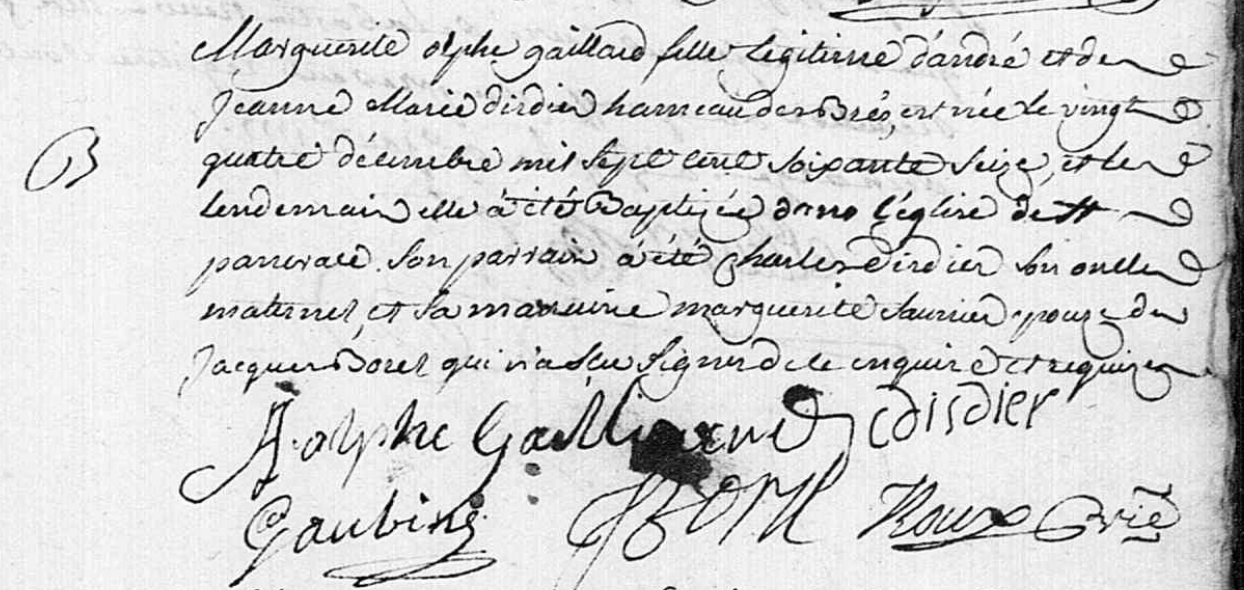 B
Marguerite olphe gaillard fille légitime d'andré et de
Jeanne Marie disdier hameau des Brés, est née le vingt
quatre décembre mil sept cent soixante seize, et le
lendemain elle à été Baptizée dans l'église de St
pancrace. Son parrain à été Charles Disdier son oncle
maternel, et sa marraine marguerite Saunier epouze de
Jacques Borel qui n'a sçu signer de ce enquize et requize
A. olphe Gaillard C disdier
Gaubing J Borel Roux Crié